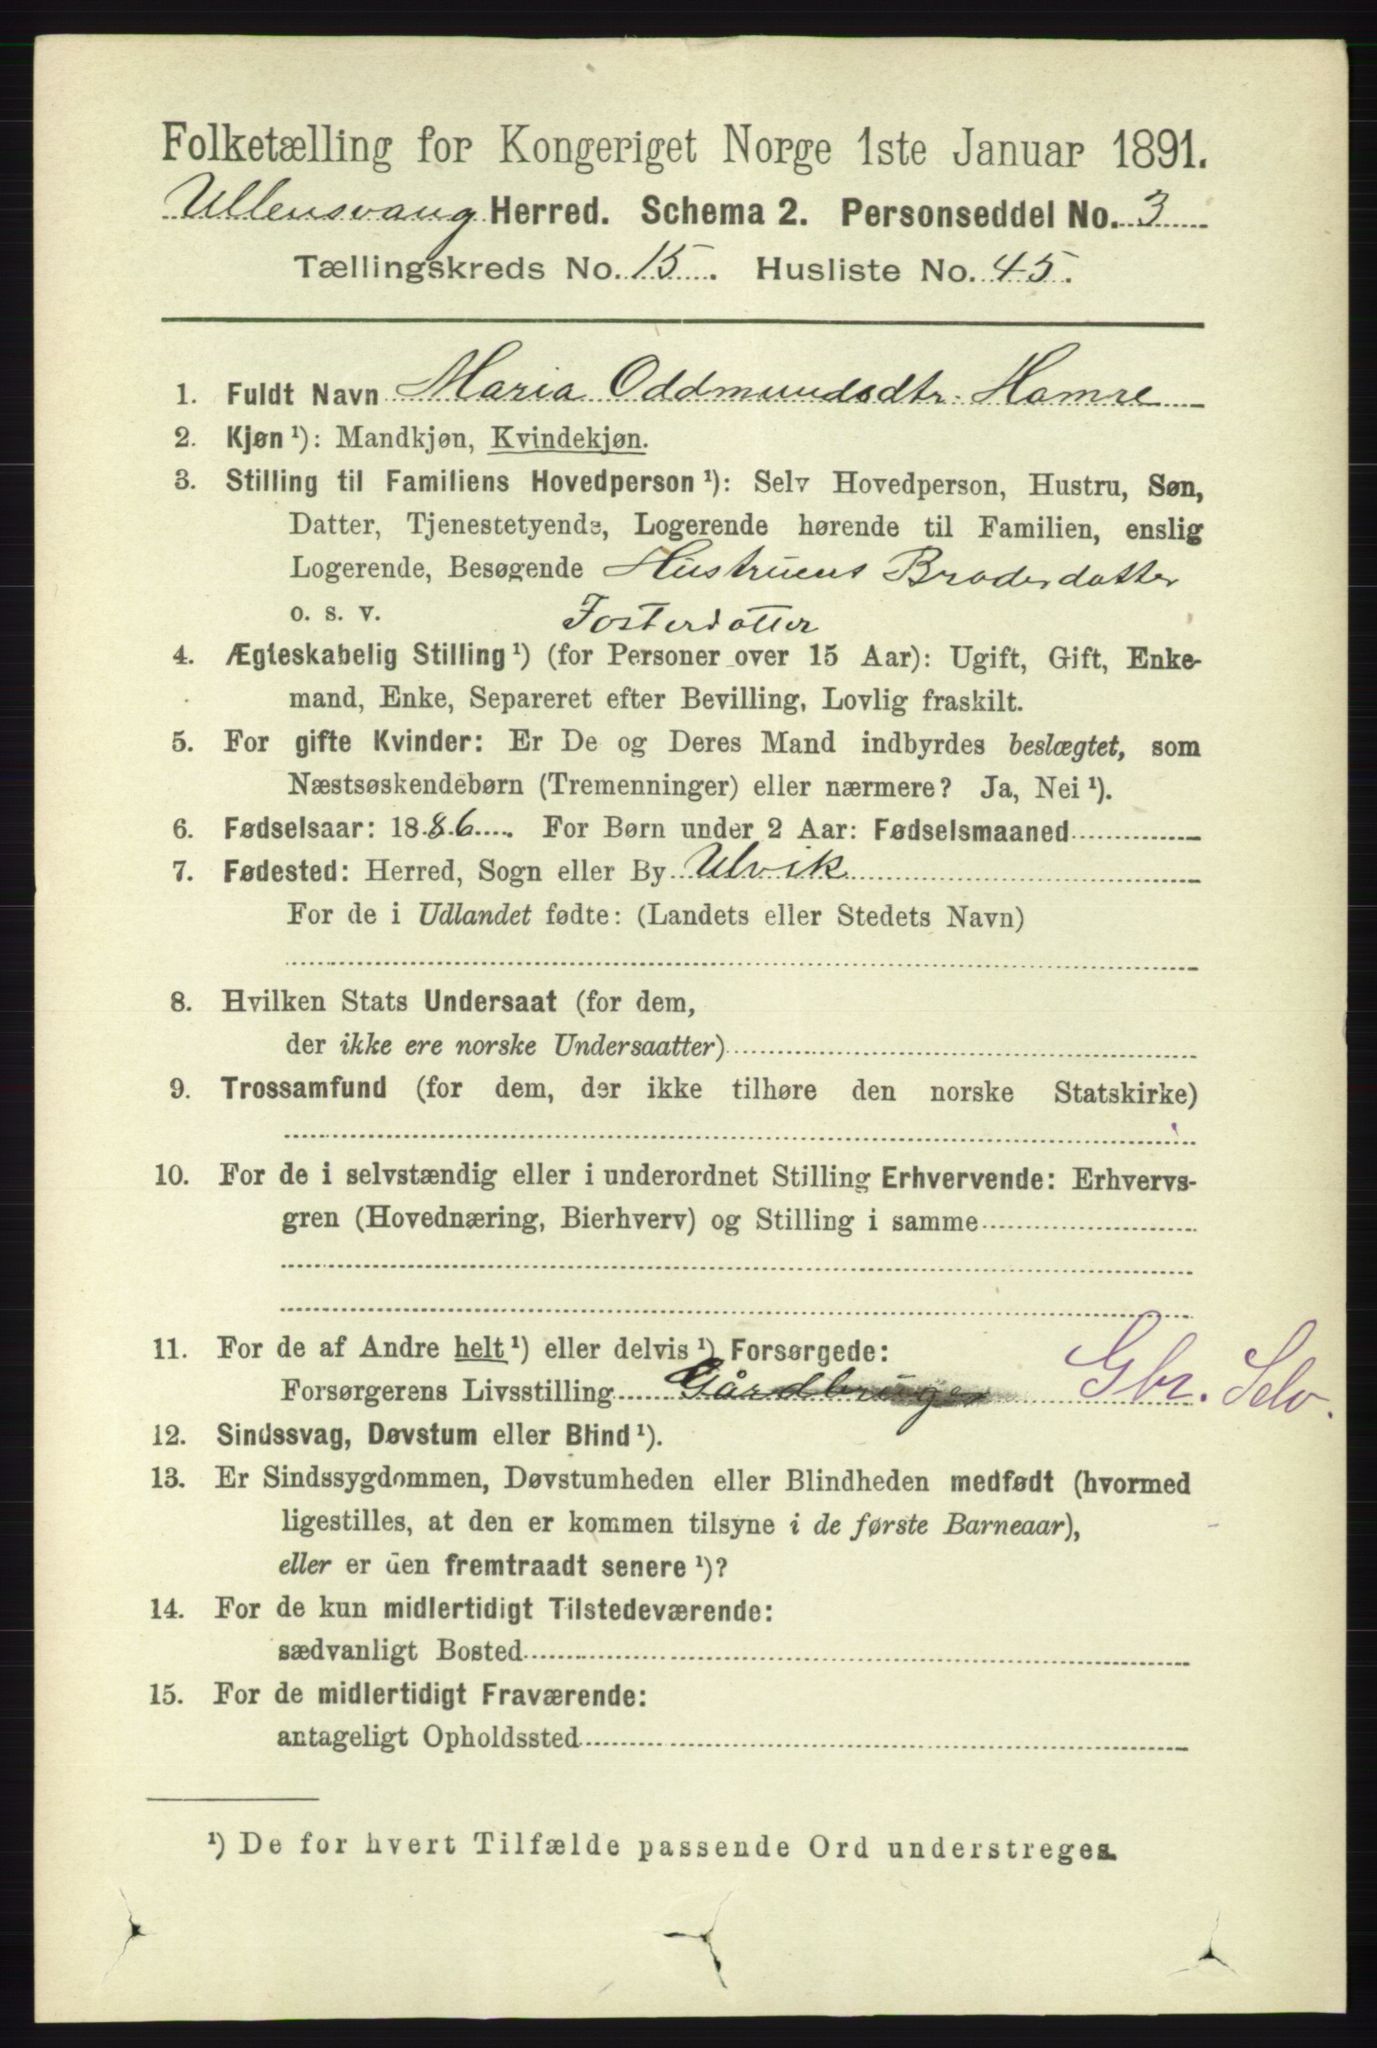 Folketælling for Kongeriget Norge 1ste Januar 1891.
Ullensvang Herred. Schema 2. Personseddel No. 3
Tællingskreds No. 15. Husliste No. 45.
1. Fuldt Navn Maria Oddmundsdtr. Hamre
2. Kjøn ¹): Mandkjøn, Kvindekjøn.
3. Stilling til Familiens Hovedperson ¹): Selv Hovedperson, Hustru, Søn,
Datter, Tjenestetyende, Logerende hørende til Familien, enslig
Logerende, Besøgende Hustruens Broderdatter
o. s. v. Fosterdatter
4. Ægteskabelig Stilling ¹) (for Personer over 15 Aar): Ugift, Gift, Enke-
mand, Enke, Separeret efter Bevilling, Lovlig fraskilt.
5. For gifte Kvinder: Er De og Deres Mand indbyrdes beslægtet, som
Næstsøskendebørn (Tremenninger) eller nærmere? Ja, Nei ¹).
6. Fødselsaar: 1886. For Børn under 2 Aar: Fødselsmaaned
7. Fødested: Herred, Sogn eller By Ulvik
For de i Udlandet fødte: (Landets eller Stedets Navn)
8. Hvilken Stats Undersaat (for dem,
der ikke ere norske Undersaatter)
9. Trossamfund (for dem, der ikke tilhøre den norske Statskirke)
10. For de i selvstændig eller i underordnet Stilling Erhvervende: Erhvervs-
gren (Hovednæring, Bierhverv) og Stilling i samme
11. For de af Andre helt ¹) eller delvis ¹) Forsørgede:
Forsørgerens Livsstilling Gårdbruger Gbr. Selv.
12. Sindssvag, Døvstum eller Blind ¹).
13. Er Sindssygdommen, Døvstumheden eller Blindheden medfødt (hvormed
ligestilles, at den er kommen tilsyne i de første Barneaar),
eller er den fremtraadt senere ¹)?
14. For de kun midlertidigt Tilstedeværende:
sædvanligt Bosted
15. For de midlertidigt Fraværende:
antageligt Opholdssted
¹) De for hvert Tilfælde passende Ord understreges.